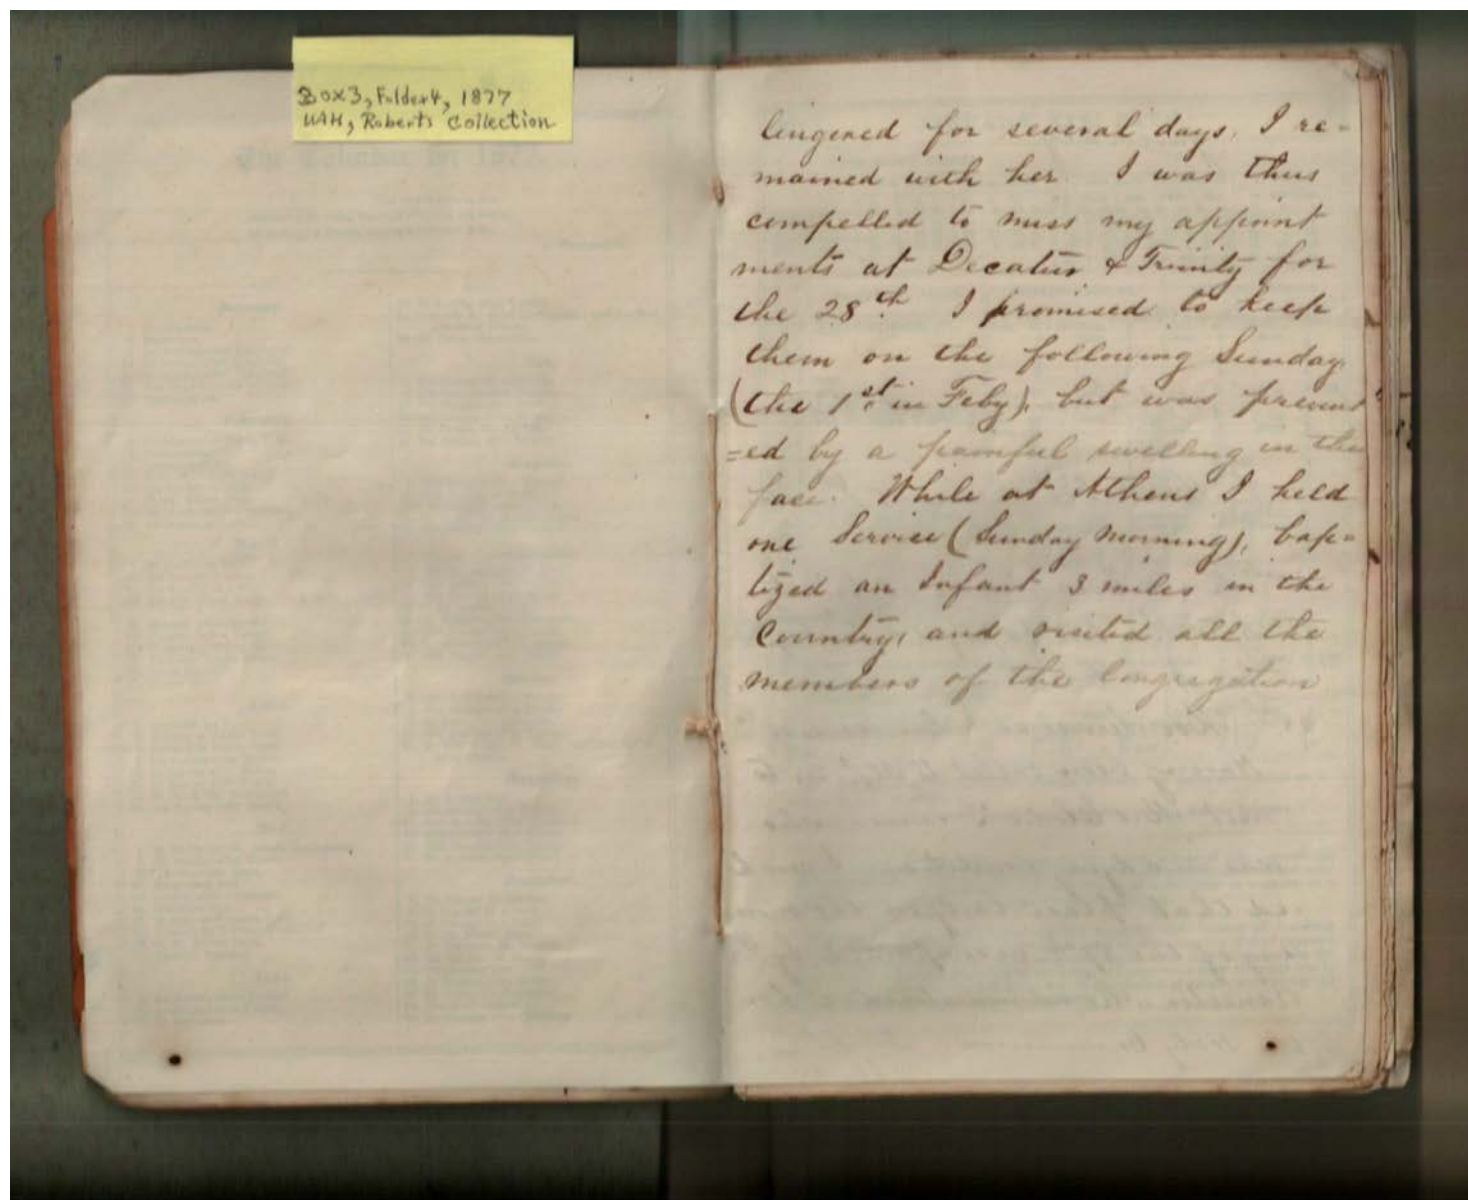 Box 3, Folder 4, 1877
UAH, Roberts Collection
lingered for several days, I re-
mained with her. I was thus
compelled to miss my appoint
ments at Decatur & Trinity for
the 28th I promised to keep
them on the following Sunday,
(the 1st in Feby), but was prevent
=ed by a painful swelling in the
face. While at Athens I held
one Service (Sunday Morning), bap=
tized an Infant 3 miles in the
Country, and visited all the
members of the Congregation